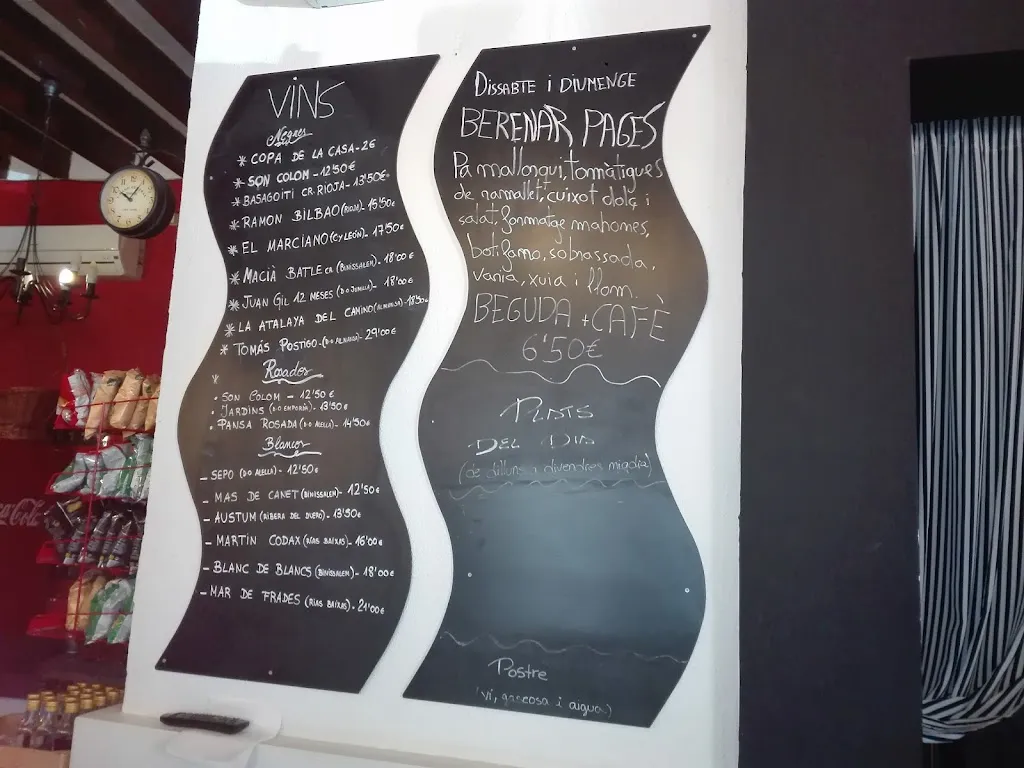 VINS
Negres
* COPA DE LA CASA - 2€
* SON COLOM - 12'50€
* BASAGOITI CR. RIOJA - 13'50€
* RAMON BILBAO (RIOJA) - 15'50€
* EL MARCIANO (C Y LEÓN) - 17'50€
* MACIÀ BATLE CR. (BINISSALEM) - 18'00€
* JUAN GIL 12 MESES (D.O JUMILLA) - 18'00€
* LA ATALAYA DEL CAMINO (ALMANSA) - 18'50€
* TOMÁS POSTIGO (D.O ALMANSA) - 29'00€
Rosados
· SON COLOM - 12'50€
· JARDINS (D.O EMPORDÀ) - 13'50€
· PANSA ROSADA (D.O ALELLA) - 14'50€
Blancos
- SEPO (D.O ALELLA) - 12'50€
- MAS DE CANET (BINISSALEM) - 12'50€
- AUSTUM (RIBERA DEL DUERO) - 13'50€
- MARTÍN CODAX (RÍAS BAIXAS) - 16'00€
- BLANC DE BLANCS (BINISSALEM) - 18'00€
- MAR DE FRADES (RÍAS BAIXAS) - 21'00€
DISSABTE i DIUMENGE
BERENAR PAGÈS
Pa mallonqui, tomàtigues
de ramallet, cuixot dolç i
salat, formatge mahones,
botifarra, sobrassada,
varia, xuia i llom.
BEGUDA + CAFÈ
6'50€
PLATS
DEL DIA
(de dilluns a divendres migdia)
Postre
(vi, gaseosa i aigua)
Coca-Cola